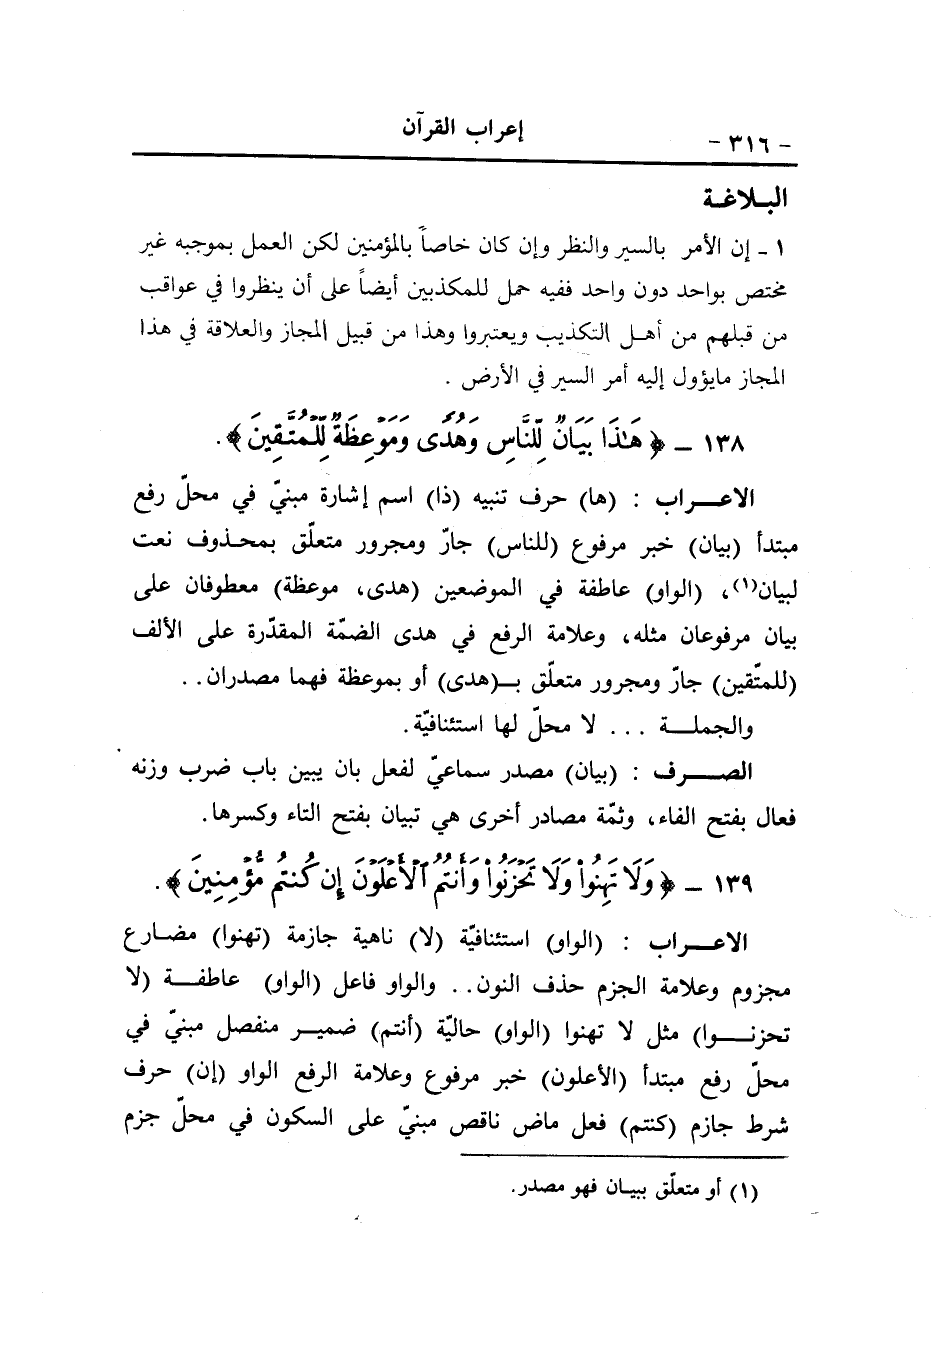 إعراب القرآن
- ٣١٦ -
البـلاغـة
١ ـ إن الأمر بالسير والنظر وإن كان خاصاً بالمؤمنين لكن العمل بموجبه غير
مختص بواحد دون واحد ففيه حمل للمكذبين أيضاً على أن ينظروا في عواقب
من قبلهم من أهـل التكذيب ويعتبروا وهذا من قبيل المجاز والعلاقة في هذا
المجاز مايؤول إليه أمر السير في الأرض .
١٣٨ ـ ﴿ هَـٰذَا بَيَانٌ لِّلنَّاسِ وَهُدًى وَمَوْعِظَةٌ لِّلْمُتَّقِينَ ﴾.
الاعـــراب : (ها) حرف تنبيه (ذا) اسم إشارة مبنيّ في محلّ رفع
مبتدأ (بيان) خبر مرفوع (للناس) جارّ ومجرور متعلّق بمحـذوف نعت
لبيان(١)، (الواو) عاطفة في الموضعين (هدى، موعظة) معطوفان على
بيان مرفوعان مثله، وعلامة الرفع في هدى الضمّة المقدّرة على الألف
(للمتّقين) جارّ ومجرور متعلّق بـ(هدى) أو بموعظة فهما مصدران. .
والجملـــة ... لا محلّ لها استئنافيّة.
الصـــرف : (بيان) مصدر سماعيّ لفعل بان يبين باب ضرب وزنه
فعال بفتح الفاء، وثمّة مصادر أخرى هي تبيان بفتح التاء وكسرها.
١٣٩ ـ ﴿ وَلَا تَهِنُوا۟ وَلَا تَحْزَنُوا۟ وَأَنتُمُ ٱلْأَعْلَوْنَ إِن كُنتُم مُّؤْمِنِينَ ﴾.
الاعـــراب : (الواو) استئنافيّة (لا) ناهية جازمة (تهنوا) مضـارع
مجزوم وعلامة الجزم حذف النون. . والواو فاعل (الواو) عاطفـــة (لا
تحزنـــوا) مثل لا تهنوا (الواو) حاليّة (أنتم) ضميـر منفصل مبنيّ في
محلّ رفع مبتدأ (الأعلون) خبر مرفوع وعلامة الرفع الواو (إن) حرف
شرط جازم (كنتم) فعل ماض ناقص مبنيّ على السكون في محلّ جزم
(١) أو متعلّق ببيـان فهو مصدر.